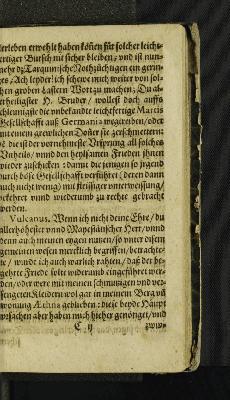 erleben erwehlt haben können für solcher leicht-
fertiger Bursch nit sicher bleiben; vnd ist nun-
mehr dz Tarquinische Nothzüchtigen ein gerin-
ges, Ach leyder! ich schewe mich weiter von sol-
chen groben Lastern Wort zu machen; Du al-
ler heiligster H. Bruder / wollest doch auffs
schleunigste die vnbekandte leichtfertige Martis
Gesellschafft auß Germania wegtreiben / oder
mit einem grewlichen Donner sie zerschmettern:
dz die ist der vornehmeste Vrsprung all solches
Vnheils / vnnd den heylsamen Frieden jhnen
wieder zuschicken: damit die jenigen so jrgend
durch böse Gesellschafft verführet (deren dann
auch nicht wenig) mit fleissiger vnterweissung /
bekehret vnnd wiederumb zu rechte gebracht
werden.
Vulcanus. Wenn ich nicht deine Ehre / du
allerhöhester vnnd Mayestänischer Herr / vnnd
denn auch meinen eygen nutzen / so vnter disem
gemeinen wesen mercklich begriffen / betrachte-
te / würde ich auch warlich rahten / daß der be-
gehrte Friede solte widerumb eingeführet wer-
den / oder were mit meinen schmutzigen vnd ver-
sengeten Kleidern wol gar in meinem Berg vñ
wonung Æthna geblieben: diese beyde Haupt
vrsachen aber haben mich hieher genötiget / vnd
C ij
zwin-